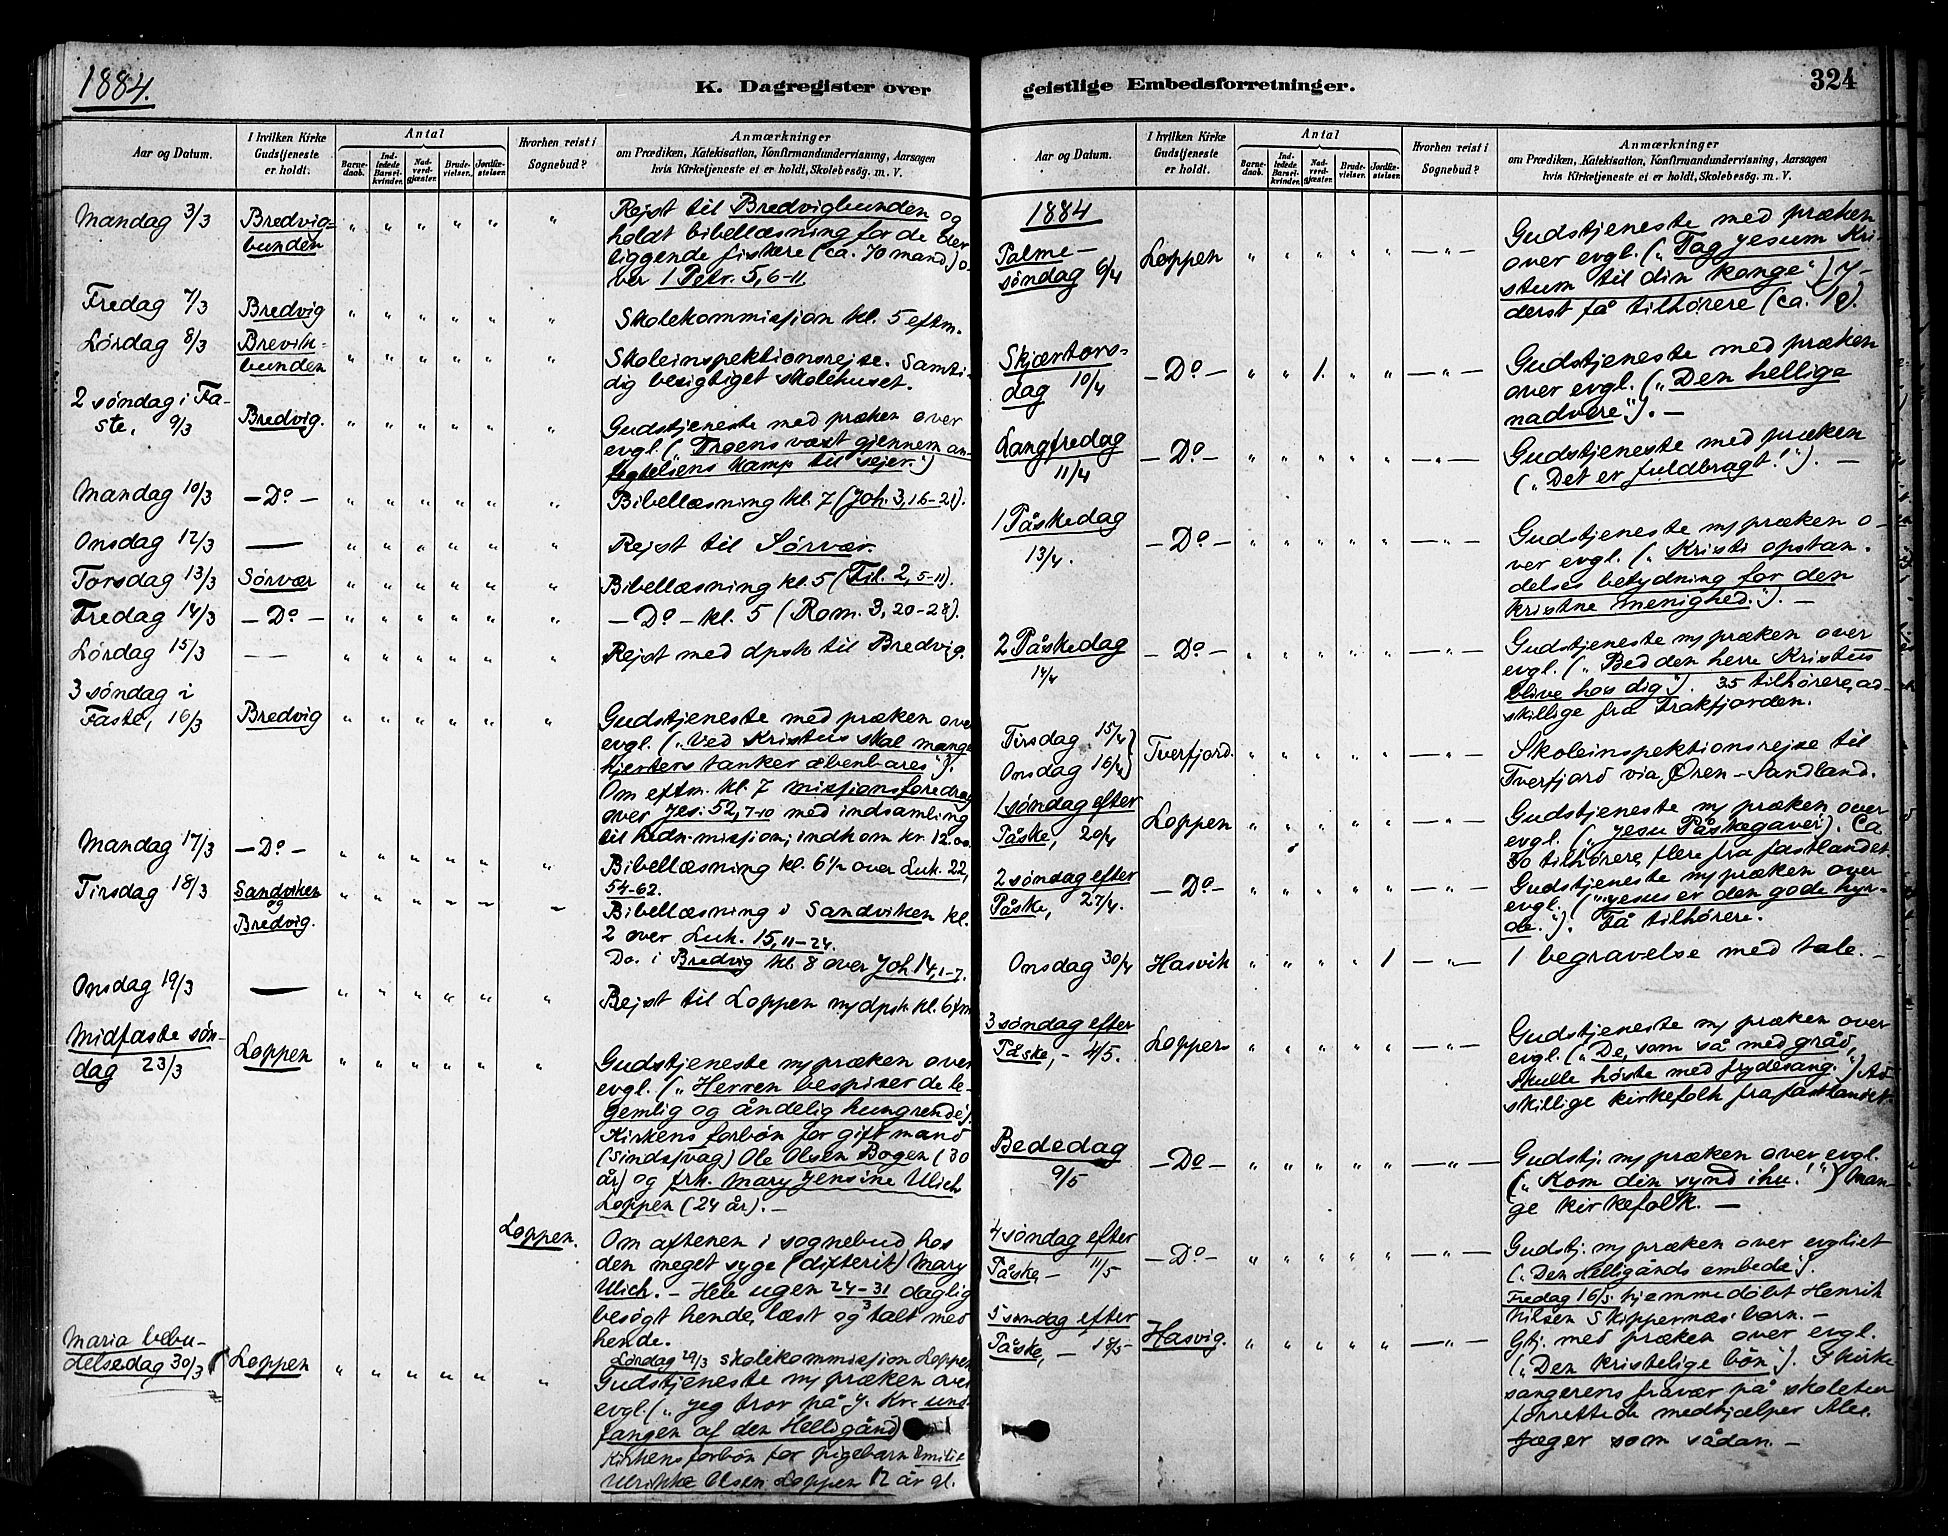 1884.
K. Dagregister over
Aar og Datum.
I hvilken Kirke Gudstjeneste er holdt.
Antal
Barnedaab.
Indledede Barselkvinder.
Nadverdgjæster.
Brudevielser.
Jordfæstelser.
Hvorhen reist i Sognebud?
Anmærkninger
om Prædiken, Katekisation, Konfirmandundervisning, Aarsagen
hvis Kirketjeneste ei er holdt, Skolebesøg. m. V.
Mandag 3/3 Bredvigbunden " " " " " " Rejst til Bredvigbunden og
holdt bibellæsning for de der
liggende fiskere (ca. 70 mand) o-
ver 1 Petr. 5, 6-11.
Fredag 7/3 Bredvig " " " " " " Skolekommission kl. 5 eftm.
Lørdag 8/3 Brevikbunden " " " " " " Skoleinspektionsrejse. Samti-
dig besigtiget skolehuset.
2 søndag i Fa-
ste, 9/3 Bredvig. " " " " " " Gudstjeneste med præken over
evgl. („Troens væxt gjennem an-
fegtelsens kamp til sejer.")
Mandag 10/3 - Do - " " " " " " Bibellæsning kl. 7 (Joh. 3, 16-21).
Onsdag 12/3 — " " " " " " Rejst til Sørvær.
Torsdag 13/3 Sørvær " " " " " " Bibellæsning kl. 5 (Fil. 2, 5-11).
Fredag 14/3 - Do - " " " " " " - Do - kl. 5 (Rom. 3, 20-28).
Lørdag 15/3 — " " " " " " Rejst med dpsk til Bredvig.
3 søndag i
Faste, 16/3 Bredvig " " " " " " Gudstjeneste med præken over
evgl. („Ved Kristus skal mange
hjerters tanker åbenbares").
Om eftm. kl. 7 missionsforedrag
over Jes. 52, 7-10 med indsamling
til hedn. mission; indkom kr. 12.00.
Mandag 17/3 - Do - " " " " " " Bibellæsning kl. 6 1/2 over Luk. 22,
54-62.
Tirsdag 18/3 Sandviken og Bredvig. " " " " " " Bibellæsning i Sandviken kl.
2 over Luk. 15, 11-24.
Do. i Bredvig kl. 8 over Joh. 14, 1-7.
Onsdag 19/3 — " " " " " " Rejst til Loppen m/ dpsk kl. 6 fm
Midfaste søn-
dag 23/3 Loppen " " " " " " Gudstjeneste m/ præken over
evgl. („Herren bespiser de le-
gemlig og åndelig hungrende").
Kirkens forbøn for gift mand
(sindssvag) Ole Olsen Bogen (30
år) og frk. Mary Jensine Ulich
Loppen (24 år). —
Loppen. Om aftenen i sognebud hos
den meget syge (difterit) Mary
Ulich. - Hele ugen 24-31 daglig
besøgt hende, læst og talt med
hende.
Lørdag 29/3 skolekommission Loppen
Maria bebu-
delsesdag 30/3 Loppen " " " " " " Gudstjeneste m/ præken over
evgl. („Jeg tror på J. Kr. und-
fangen af den Helligånd)
Kirkens forbøn for pigebarn Emilie
Ulrikke Olsen Loppen 12 år gl.
geistlige Embedsforretninger.
324
Aar og Datum.
I hvilken Kirke Gudstjeneste er holdt.
Antal
Barnedaab.
Indledede Barselkvinder.
Nadverdgjæster.
Brudevielser.
Jordfæstelser.
Hvorhen reist i Sognebud?
Anmærkninger
om Prædiken, Katekisation, Konfirmandundervisning, Aarsagen
hvis Kirketjeneste ei er holdt, Skolebesøg. m. V.
1884
Palme-
søndag 6/4 Loppen " " " " " - " - Gudstjeneste med præken
over evgl. („Tag Jesum Kri-
stum til din konge") Y-
derst få tilhørere (ca. 10).
Skjærtors-
dag 10/4 - Do - " " 1. " " - " - Gudstjeneste med præken
over evgl. („Den hellige
nadvere"). —
Langfredag
11/4 - Do - " " " " " - " - Gudstjeneste med præken
(„Det er fuldbragt!"). —
1 Påskedag
13/4. - Do - " " " " " - " - Gudstjeneste m/ præken o-
ver evgl. („Kristi opstan-
delses betydning for den
kristne menighed."). —
2 Påskedag
14/4 - Do - " " " " " - " - Gudstjeneste m/ præken over
evgl. („Bed den herre Kristus
blive hos dig"). 35 tilhørere, ad-
skillige fra Frakfjorden.
Tirsdag 15/4
Onsdag 16/4 Tverfjord. " " " " " - " - Skoleinspektionsrejse til
Tverfjord via, Øren-Sandland.
1 søndag efter
Påske, 20/4 Loppen " " " " " - " - Gudstjeneste m/ præken over
evgl. („Jesu Påskegaver). Ca
30 tilhørere, flere fra fastlandet.
2 søndag efter
Påske, 27/4. - Do - " " " " " - " - Gudstjeneste m/ præken over
evgl. („Jesus er den gode hyr-
de."). Få tilhørere.
Onsdag 30/4 Hasvik " " " " 1 - " - 1 begravelse med tale. —
3 søndag efter
Påske, - 4/5. Loppen " " " " " - " - Gudstjeneste m/ præken over
evgl. („De, som så med gråd,
skulle høste med frydesang.") Ad-
skillige kirkefolk fra fastlandet.
Bededag
9/5 - Do - " " " " " - " - Gudstj. m/ præken over evgl.
(„Kom din synd ihu!") Man-
ge kirkefolk. —
4 søndag efter
Påske, - 11/5 - Do - " " " " " - " - Gudstj. m/ præken over evgliet
(„Den Helligånds embede").
Fredag 16/5 hjemmedøbt Henrik
Nilsen Skippernæs' barn. —
5 søndag efter
Påske, - 18/5 Hasvig. " " " " " - " - Gtj. med præken over evgl.
(„Den kristelige bøn"). I kirke
sangerens fravær på skoletur
forrettede medhjælper Alex.
Jæger som sådan. —